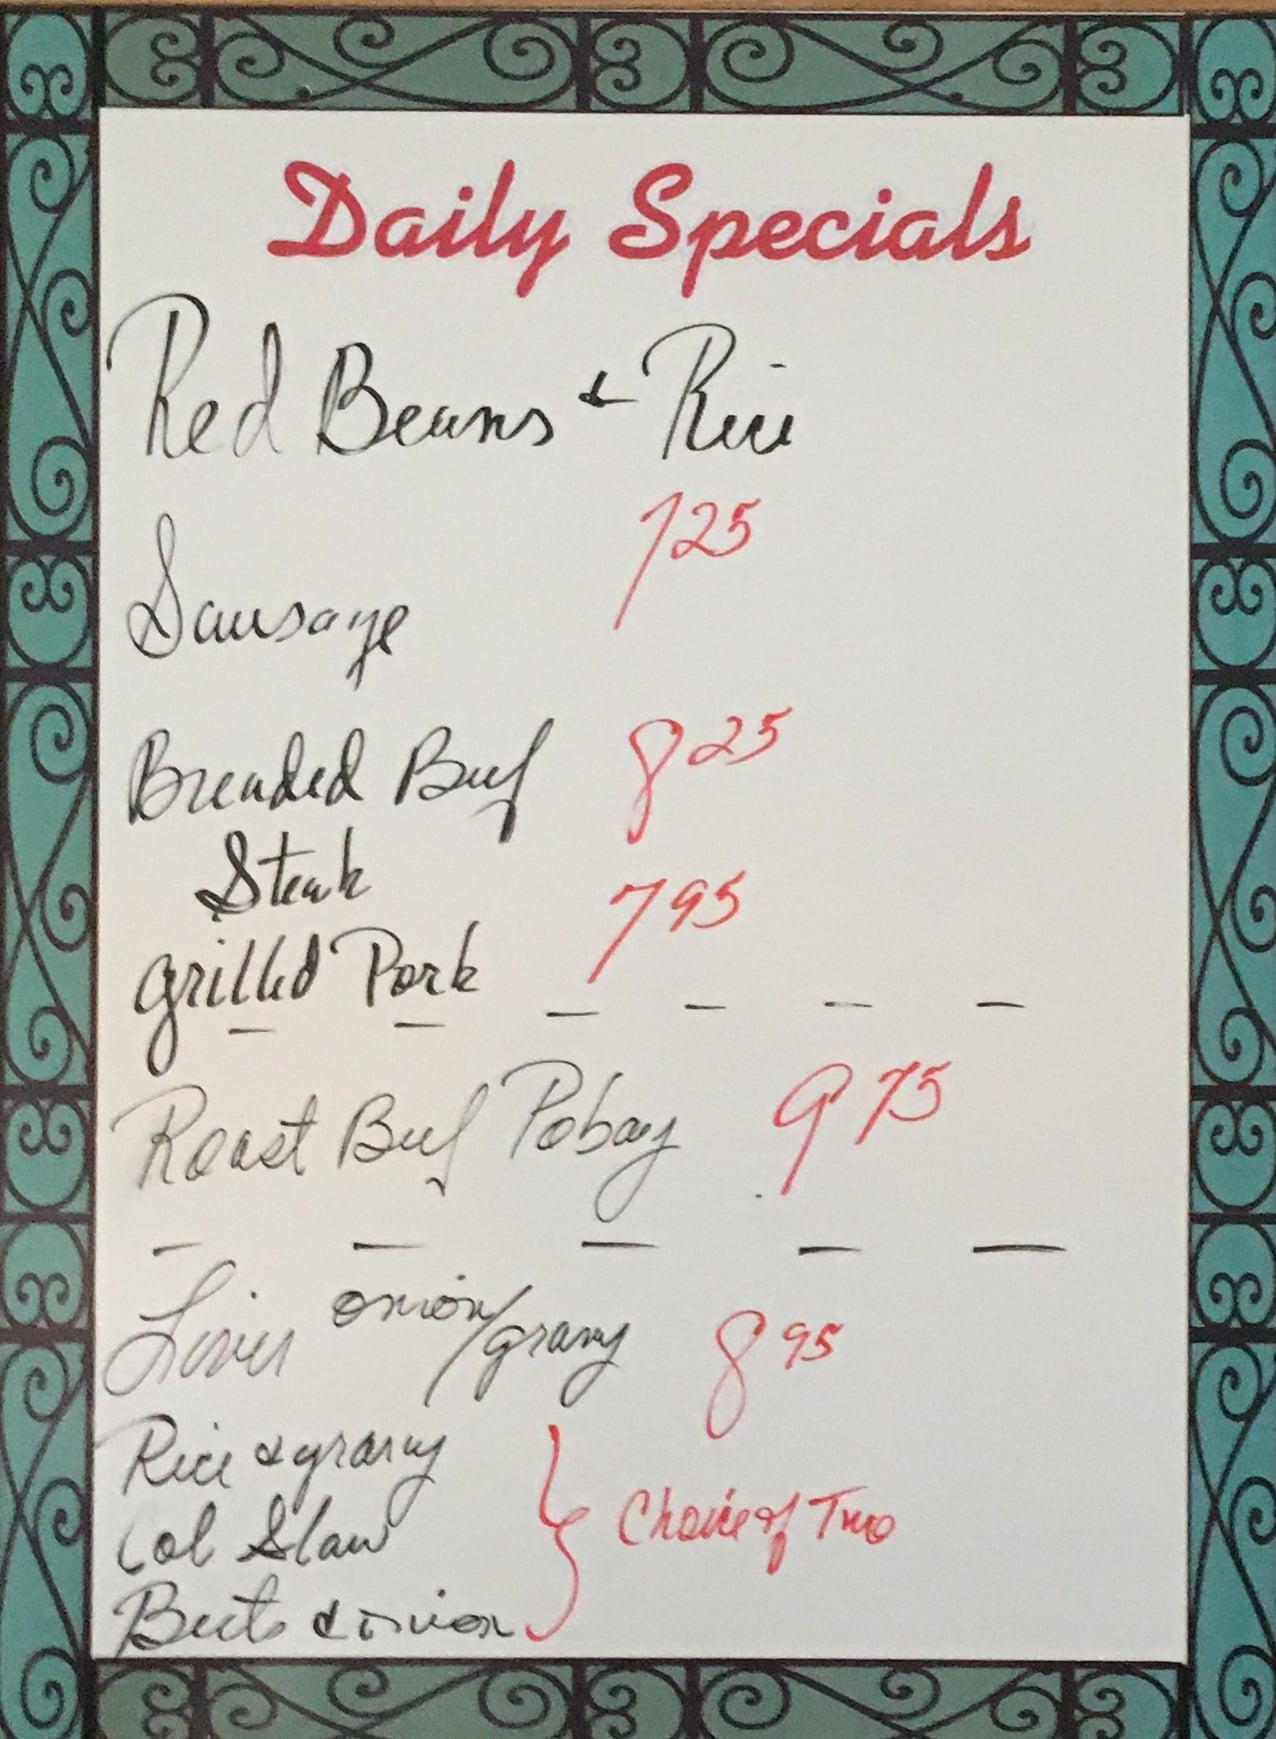 Daily Specials
Red Beans & Rice
Sausage 725
Breaded Beef 825
Steak
Grilled Pork 795
Roast Beef Poboy 975
Liver onion/gravy 895
Rice & gravy
Col Slaw
Choice of Two
Beets & onion